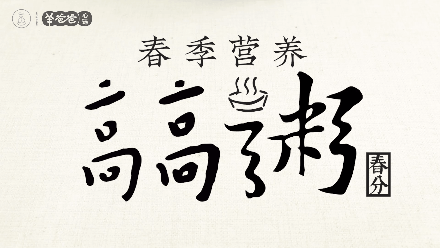 羊爸爸
春季营养
高高粥
春分